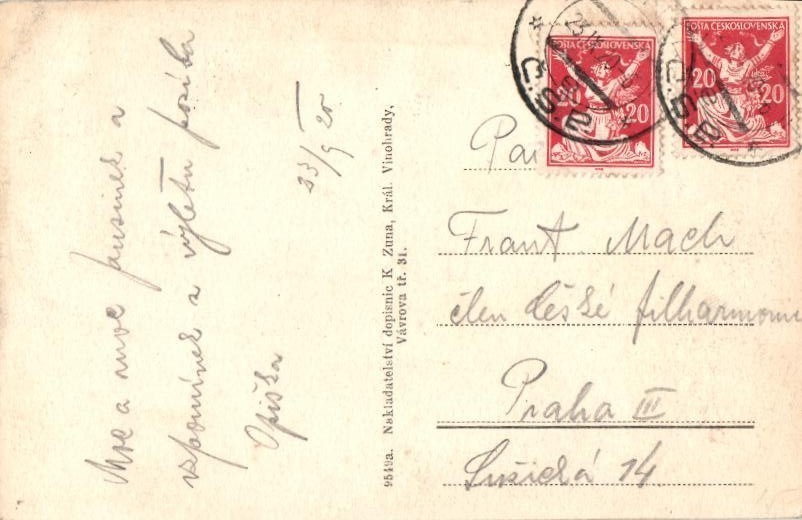 Moc a moc pusinek a
vzpomínek z výletu posílá
Opička
23/9 20
9549a. Nakladatelství dopisnic K Zuna, Král. Vinohrady,
Vávrova tř. 31.
POŠTA ČESKOSLOVENSKÁ
20 20
POŠTA ČESKOSLOVENSKÁ
20 20
Č.S.P.
Č.S.P.
Pan
Frant. Mach
člen České filharmonie
Praha III
14.